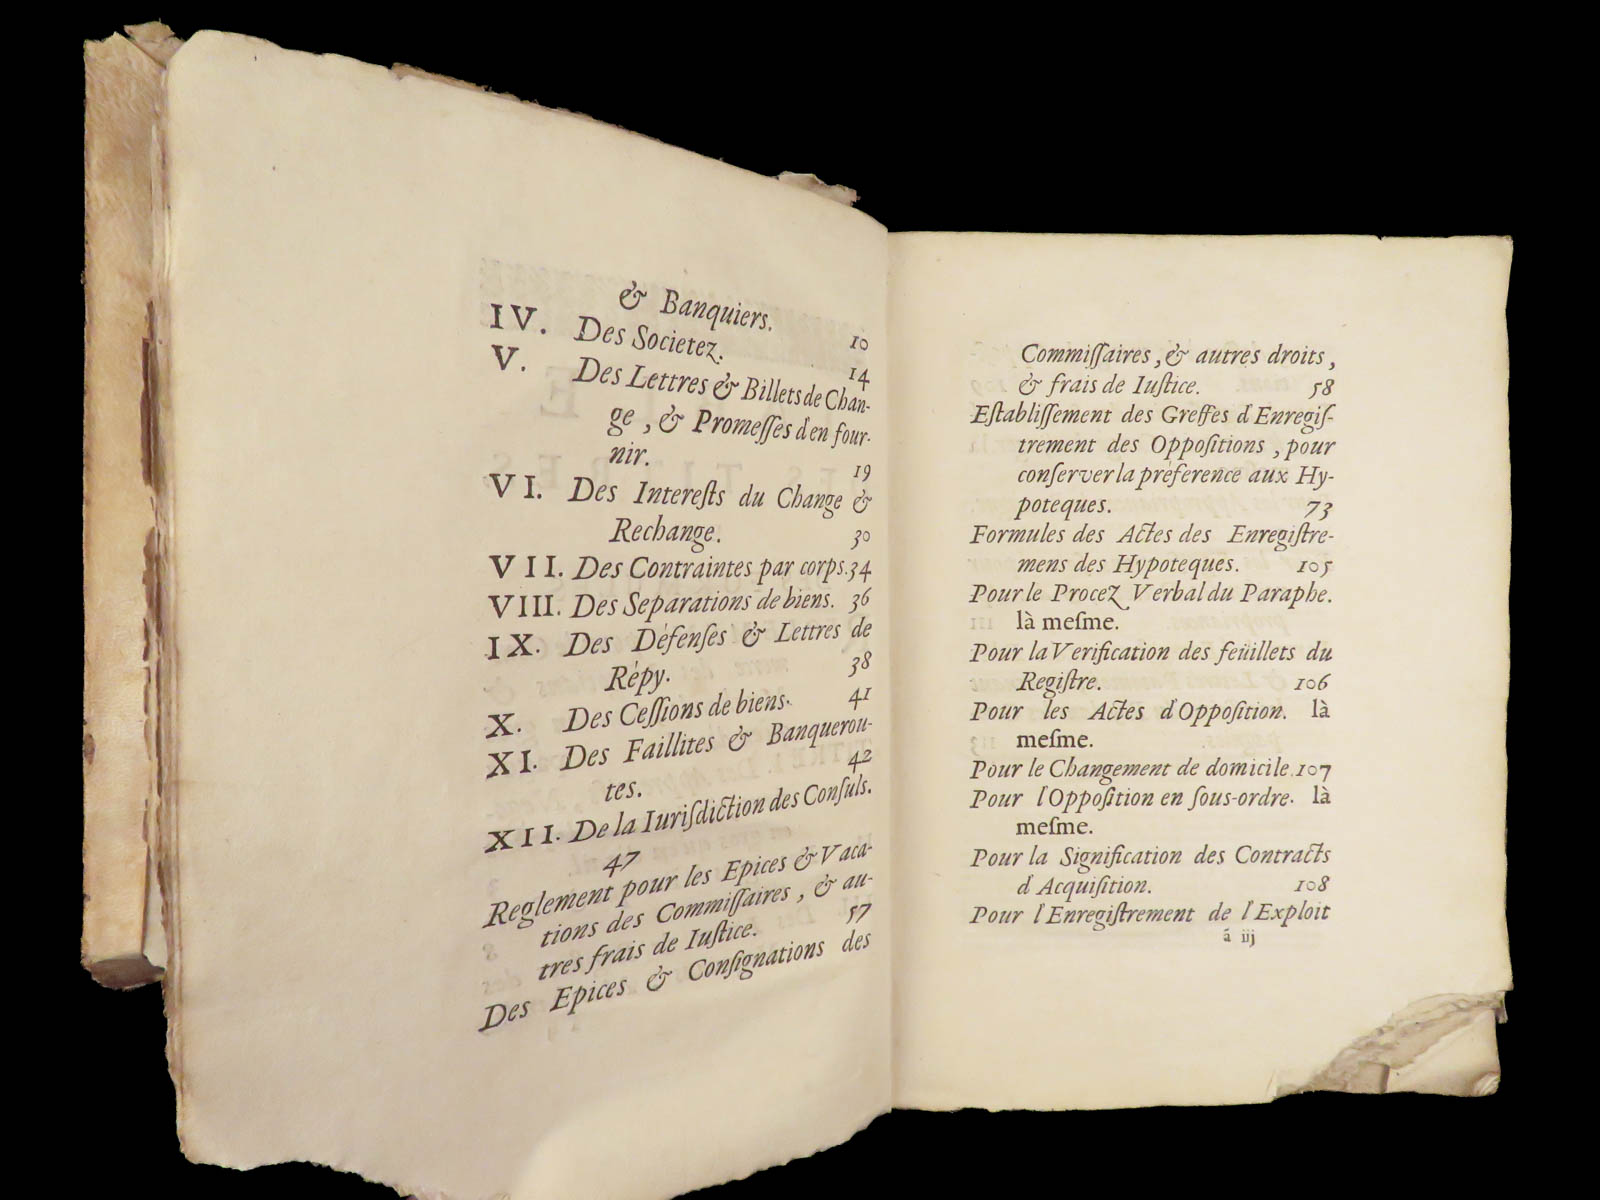 & Banquiers. 10
IV. Des Societez. 14
V. Des Lettres & Billets de Chan-
ge, & Promeſſes d'en four-
nir. 19
VI. Des Intereſts du Change &
Rechange. 30
VII. Des Contraintes par corps. 34
VIII. Des Separations de biens. 36
IX. Des Défenſes & Lettres de
Répy. 38
X. Des Ceſſions de biens. 41
XI. Des Faillites & Banquerou-
tes. 42
XII. De la Iuriſdiction des Conſuls.
47
Reglement pour les Epices & Vaca-
tions des Commiſſaires, & au-
tres frais de Iuſtice. 57
Des Epices & Conſignations des
Commiſſaires, & autres droits,
& frais de Iuſtice. 58
Eſtabliſſement des Greffes d'Enregiſ-
trement des Oppoſitions, pour
conſerver la préference aux Hy-
poteques. 73
Formules des Actes des Enregiſtre-
mens des Hypoteques. 105
Pour le Procez Verbal du Paraphe.
là meſme.
Pour la Verification des feüillets du
Regiſtre. 106
Pour les Actes d'Oppoſition. là
meſme.
Pour le Changement de domicile. 107
Pour l'Oppoſition en ſous-ordre. là
meſme.
Pour la Signification des Contracts
d'Acquiſition. 108
Pour l'Enregiſtrement de l'Exploit
á iij